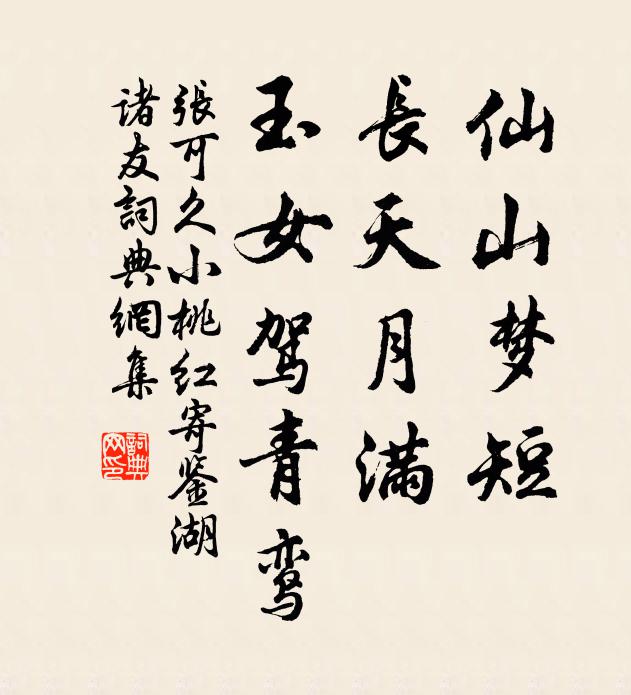 仙山梦短
長天月满
玉女驾青鸾
張可久小桃红寄鉴湖
诸友詞典網集
詞典
网印